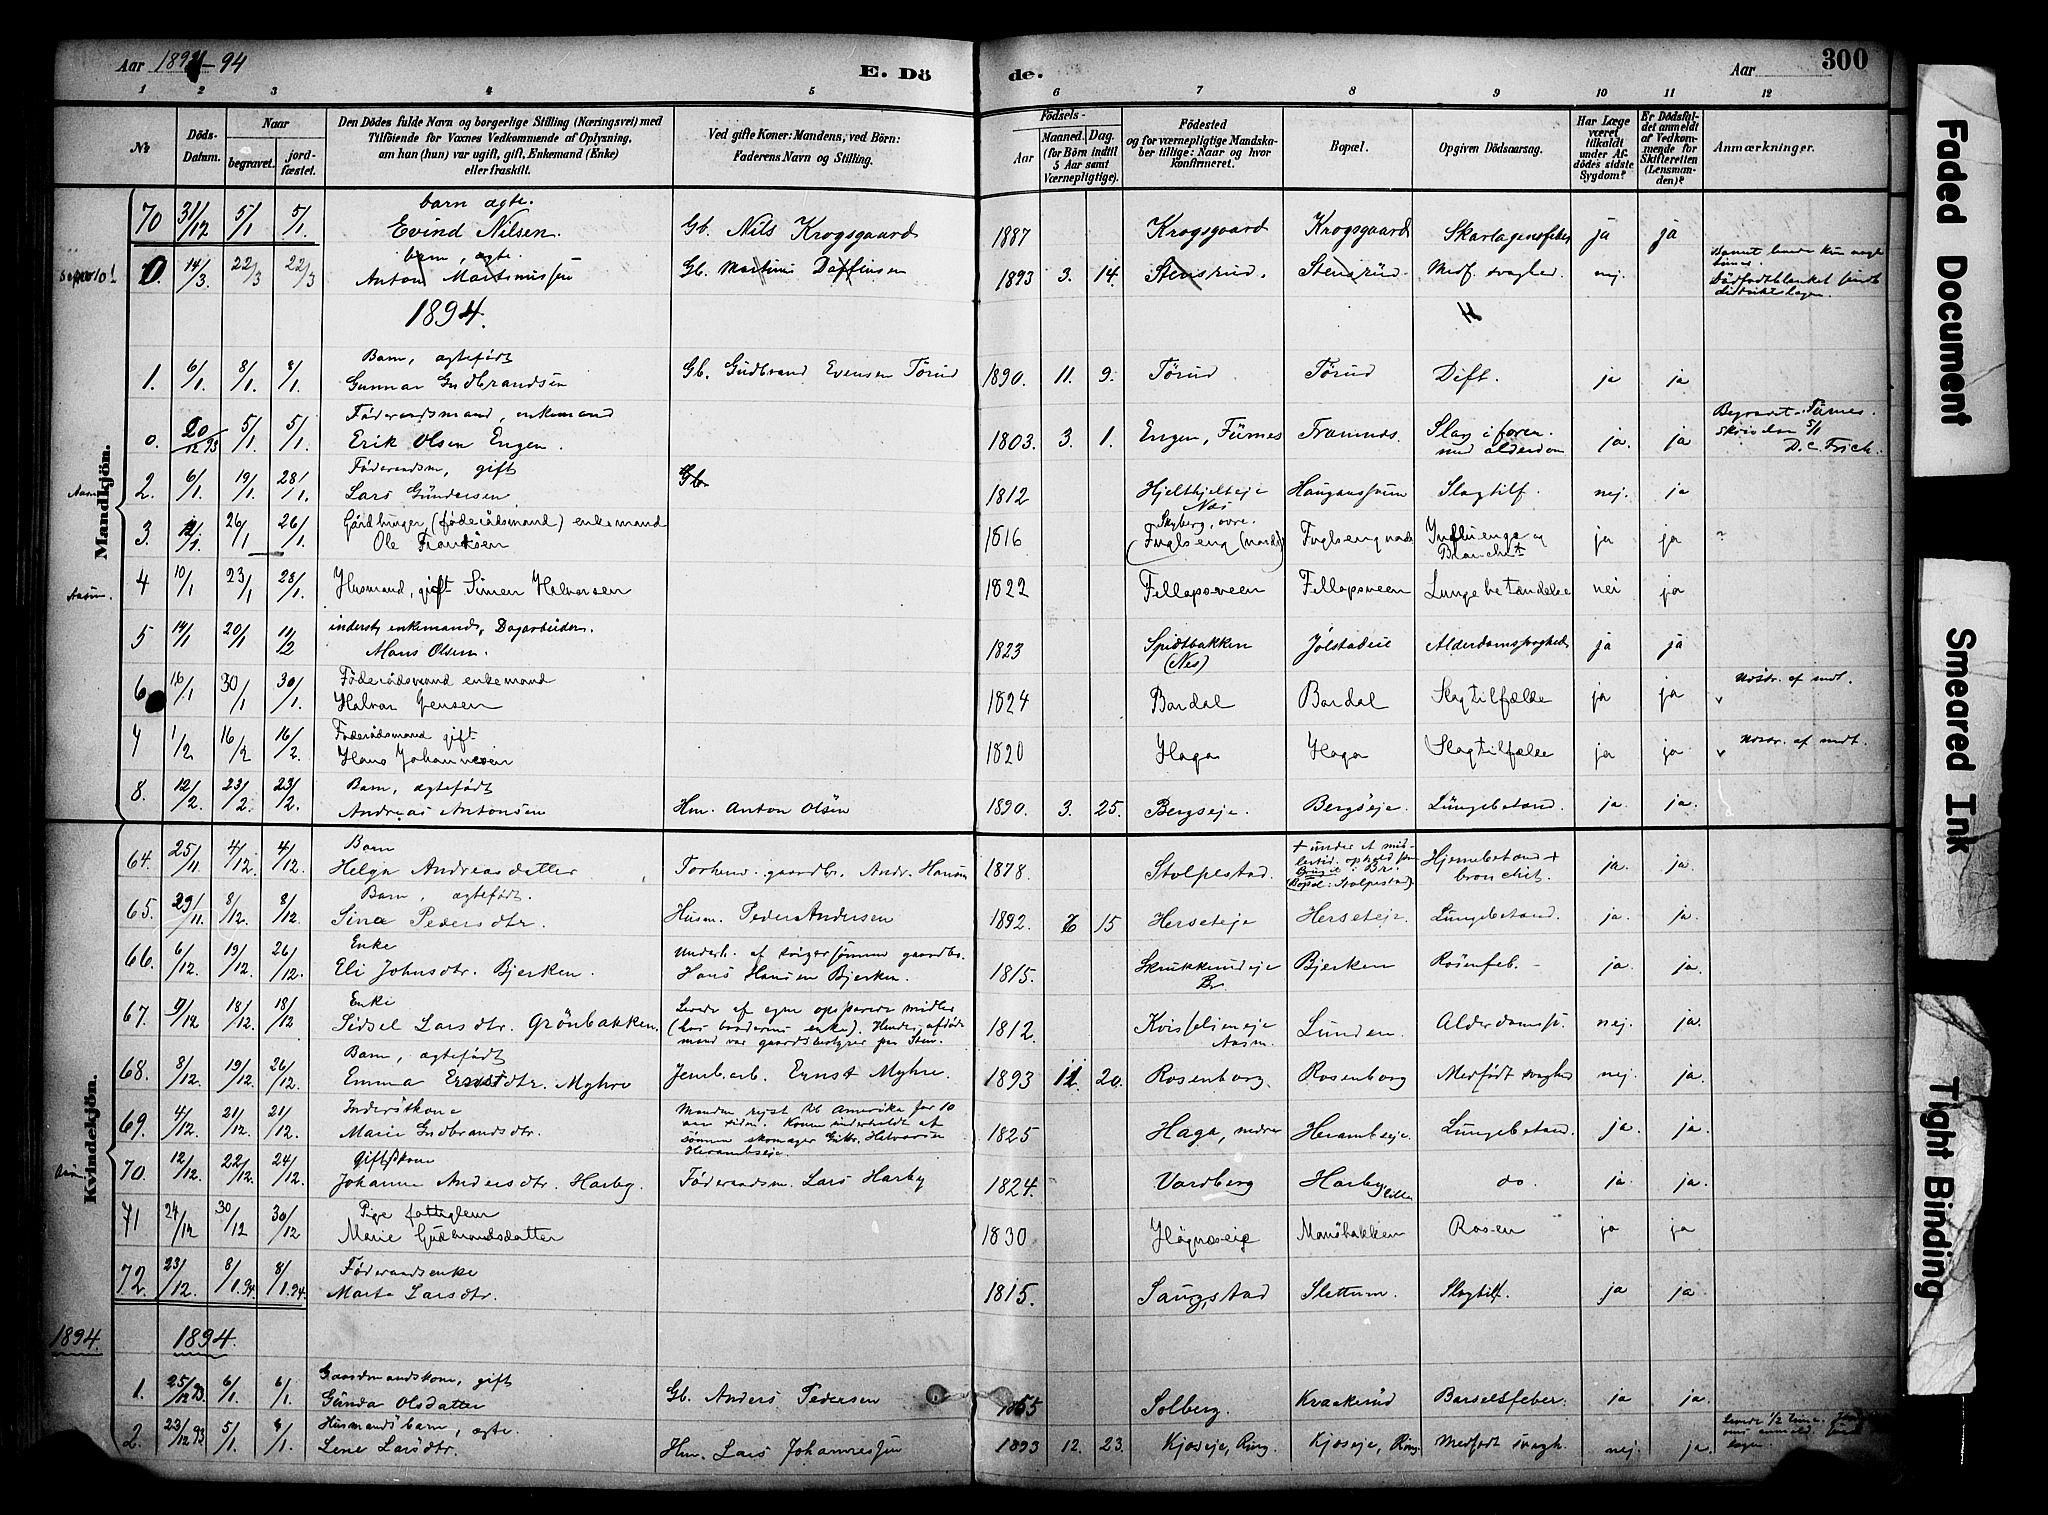 Aar 1893-94
E. Döde.
Aar
300
1 2 3 4 5 6 7 8 9 10 11 12
No
Döds-Datum.
Naar
begravet.
jordfæstet.
Den Dödes fulde Navn og borgerlige Stilling (Næringsvei) med
Tilföiende for Voxnes Vedkommende af Oplysning,
om han (hun) var ugift, gift, Enkemand (Enke)
eller fraskilt.
Ved gifte Koner: Mandens, ved Börn:
Faderens Navn og Stilling.
Födsels-
Aar
Maaned. Dag.
(for Börn indtil
5 Aar samt
Værnepligtige).
Födested
og for værnepligtige Mandska-
ber tillige: Naar og hvor
konfirmeret.
Bopæl.
Opgiven Dödsaarsag.
Har Læge
været
tilkaldt
under Af-
dödes sidste
Sygdom?
Er Dödsfal-
det anmeldt
af Vedkom-
mende for
Skifteretten
(Lensman-
den)?
Anmærkninger.
Mandkjön.
barn ægte.
70 31/12 5/1 5/1 Eivind Nilsen. Gb. Nils Krogsgaard 1887 Krogsgaard Krogsgaard Skarlagensfeber ja ja
barn, ægte.
0. 14/3. 22/3 22/3 Anton Martinussen Gb. Martinus Daffinsen 1893 3. 14. Stensrud. Stensrud. Medf. svaghed nej.
1894.
Barn, ægtefödt
1. 6/1. 8/1. 8/1. Gunnar Gudbrandsen Gb. Gudbrand Evensen Törud 1890. 11. 9. Törud Törud Dift. ja ja
Föderaadsmand, enkemand
0. 20/12 93 5/1 5/1. Erik Olsen Engen. 1803. 3. 1. Engen, Furnes Slag i foren. med alderdom ja. ja Begravet i Furnes. Skrivelse 5/1 D. C. Frich.
Föderaadsm, gift
2. 6/1. 19/1. 28/1. Lars Gundersen 1812 Nes Slagtilf. nej. ja
Gårdbruger, (föderådsmand) enkemand
3. 26/1 26/1. Ole Frantsen 1816 Skyberg, övre. (Fuglseng (nordre) Fuglseng nordre Influenza og Bronchit ja ja ?
4 10/1 23/1 28/1. Husmand, gift Simen Halvorsen 1822 Fillapsveen Fillapsveen Lungebetændelse nei ja
inderst, enkemand, Dagarbeider.
5 14/1 20/1 11/2 Hans Olsen. 1823 Spidtbakken (Nes) Jölstadeie Alderdomssvaghed ja ja
Föderådsmand enkemand
6 16/1 30/1 30/1. Halvor Jensen 1824 Bardal Bardal Slagtilfælde ja ja
Föderådsmand gift
7 1/2 16/2 16/2. Hans Johannesen 1820 Haga Haga Slagtilfælde ja ja
Barn, ægtefödt
8. 12/2. 23/2. 23/2. Andreas Antonsen Hm. Anton Olsen 1890. 3. 25. Bergseje. Bergseje. Lungebetænd. ja. ja.
Kvindekjön.
Barn
64. 25/11 4/12. 4/12. Helga Andreasdatter gaardbr. Andr. Hansen 1878 Stolpestad. (Bopæl: Stolpestad) Hjernebetænd + bronchit. ja. ja.
Barn, ægtefödt.
65. 29/11. 8/12. 8/12. Sina Pedersdtr. Husm. Peder Andersen 1892. 6 15 Herseteje Herseteje. Lungebetænd. ja. ja.
Enke
66. 6/12. 19/12. 26/12. Eli Johnsdtr. Bjerken. Underh. af svigersönnen gaardbr. Hans Hansen Bjerken. 1815. Br. Bjerken Rosenfeb. ja. ja.
Enke
67. 9/12 18/12. 18/12 Sidsel Larsdtr. Grönbakken. Levede af egne opsparede midler 1812. Aasm. Lunden. Alderdomss. nej. ja.
Barn, ægtefödt
68. 8/12. 19/12. 26/12. Emma Ernstdtr. Myhre Jernb.arb. Ernst Myhre. 1893 11 20. Rosenborg. Rosenborg Medfödt svaghed nej. ja.
Inderstkone
69. 4/12. 21/12. 21/12. Marie Gudbrandsdtr. Manden rejst til Amerika for 10 aar siden. Konen underholdt af sönnen skomager Heramseje. 1825 Haga, nedre Heramseje. Lungebetænd. ja. ja.
Gift kone
70. 12/12. 22/12. 24/12. Johanne Andersdtr. Harby. Föderaadsm. Lars Harby 1824. Vardberg Harby lille do. ja. ja.
Pige fattiglem
71 24/12 30/12 30/12 Marie Gudbrandsdatter 1830 Högnæseie Mansbakken Rosen ja ja
Föderaadsenke
72. 23/12. 8/1.94. 8/1.94. Marte Larsdtr. 1815. Saugstad Slettum. Slagtilf. ja ja
1894. 1894.
Gaardmandskone, gift
1. 25/12 93 6/1. 6/1. Gunda Olsdatter Gb. Anders Pedersen 1855 Solberg. Kvakerud Barselsfeber. ja ja.
Husmandsbarn, ægte.
2. 23/12 93 5/1. 8/1. Lene Larsdtr. Hm. Lars Johannessen 1893 12. 23. Kjoseje, Ring. Kjoseje, Ring. Medfödt svagh. nej. ja.
Faded Document
Smeared Ink
Tight Binding